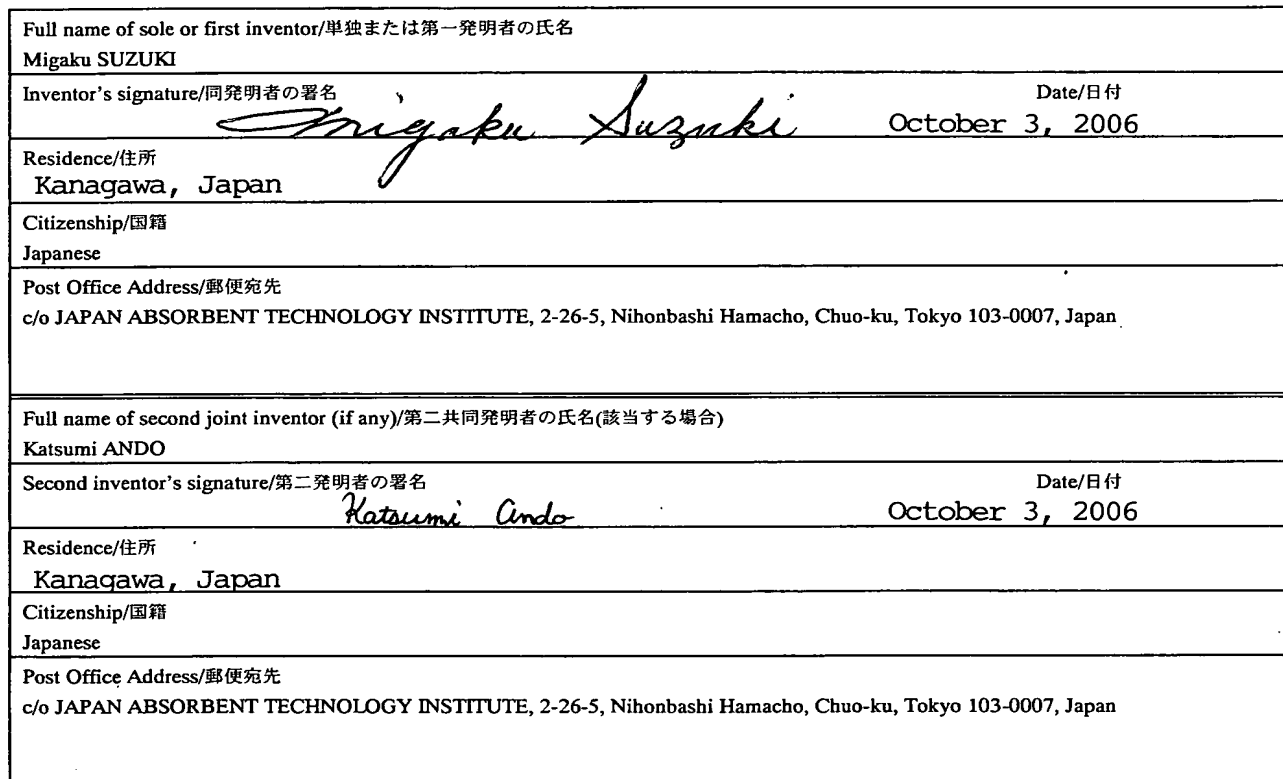 Full name of sole or first inventor/単独または第一発明者の氏名
Migaku SUZUKI
Inventor's signature/同発明者の署名 Date/日付
Migaku Suzuki October 3, 2006
Residence/住所
Kanagawa, Japan
Citizenship/国籍
Japanese
Post Office Address/郵便宛先
c/o JAPAN ABSORBENT TECHNOLOGY INSTITUTE, 2-26-5, Nihonbashi Hamacho, Chuo-ku, Tokyo 103-0007, Japan
Full name of second joint inventor (if any)/第二共同発明者の氏名(該当する場合)
Katsumi ANDO
Second inventor's signature/第二発明者の署名 Date/日付
Katsumi Ando October 3, 2006
Residence/住所
Kanagawa, Japan
Citizenship/国籍
Japanese
Post Office Address/郵便宛先
c/o JAPAN ABSORBENT TECHNOLOGY INSTITUTE, 2-26-5, Nihonbashi Hamacho, Chuo-ku, Tokyo 103-0007, Japan